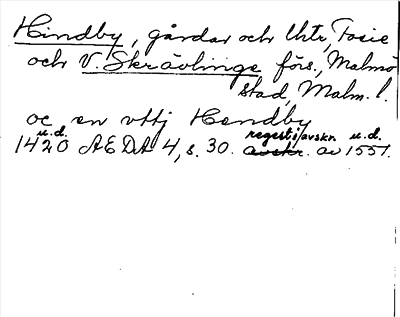 Hindby, gårdar och Uhtr, Fosie
och V. Skrävlinge förs., Malmö
stad, Malm. l.
oc en vttj Hendby
u.d. regest i/avskr. u.d.
1420 AEDA 4, s. 30. avskr. av 1551.